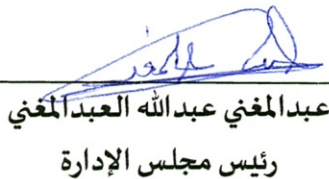 عبدالمغني عبدالله العبدالمغني
رئيس مجلس الإدارة